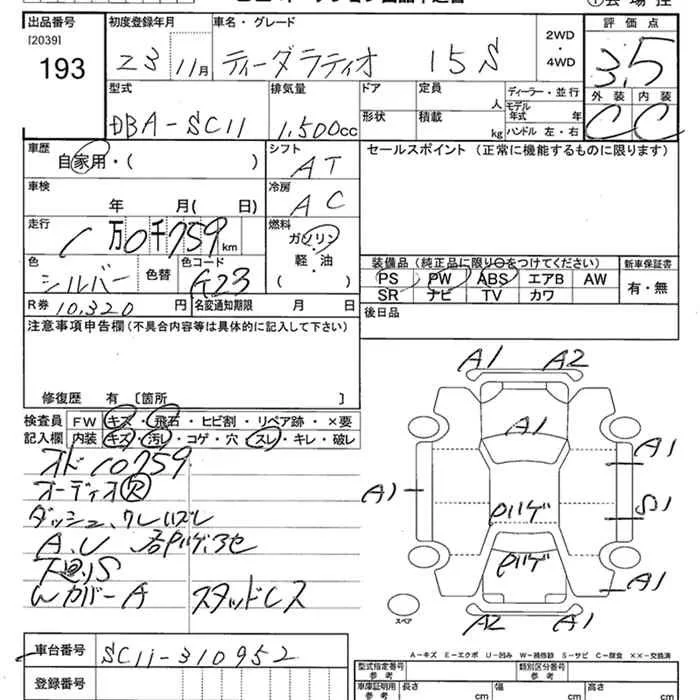 出品番号
[2039]
193
初度登録年月
23 11月
車名・グレード
ティーダラティオ 15S
2WD
・
4WD
評価点
3.5
外装 内装
C C
型式
DBA-SC11
排気量
1,500cc
ドア
形状
定員
人
積載
kg
ディーラー・並行
モデル
年式 年
ハンドル 左・右
車歴
自家用・( )
シフト
AT
セールスポイント (正常に機能するものに限ります)
車検
年 月( 日)
冷房
AC
走行
1万0千759km
燃料
ガソリン
軽・油
( )
色
シルバー
色替
色コード
K23
装備品 (純正品に限り○をつけてください)
新車保証書
PS PW ABS エアB AW
SR ナビ TV カワ
有・無
R券 10,320 円
名変通知期限 月 日
後日品
注意事項申告欄 (不具合内容等は具体的に記入して下さい)
修復歴 有 [箇所 ]
検査員
記入欄
FW キズ・飛石・ヒビ割・リペア跡・×要
内装 キズ・汚レ・コゲ・穴・スレ・キレ・破レ
オド10759
オーディオ欠
ダッシュ、クレ
A、U
下廻りS
Wカバー A スタッドレス
A1 A2
A1
A1
A1
S1
A1
A2 A1
スペア
A-キズ E-エクボ U-凹み W-補修跡 S-サビ C-腐食 XX-交換済
車台番号
SC11-310952
登録番号
型式指定番号
参考
類別区分番号
参考
車庫証明用
参考
長さ cm
幅 cm
高さ cm